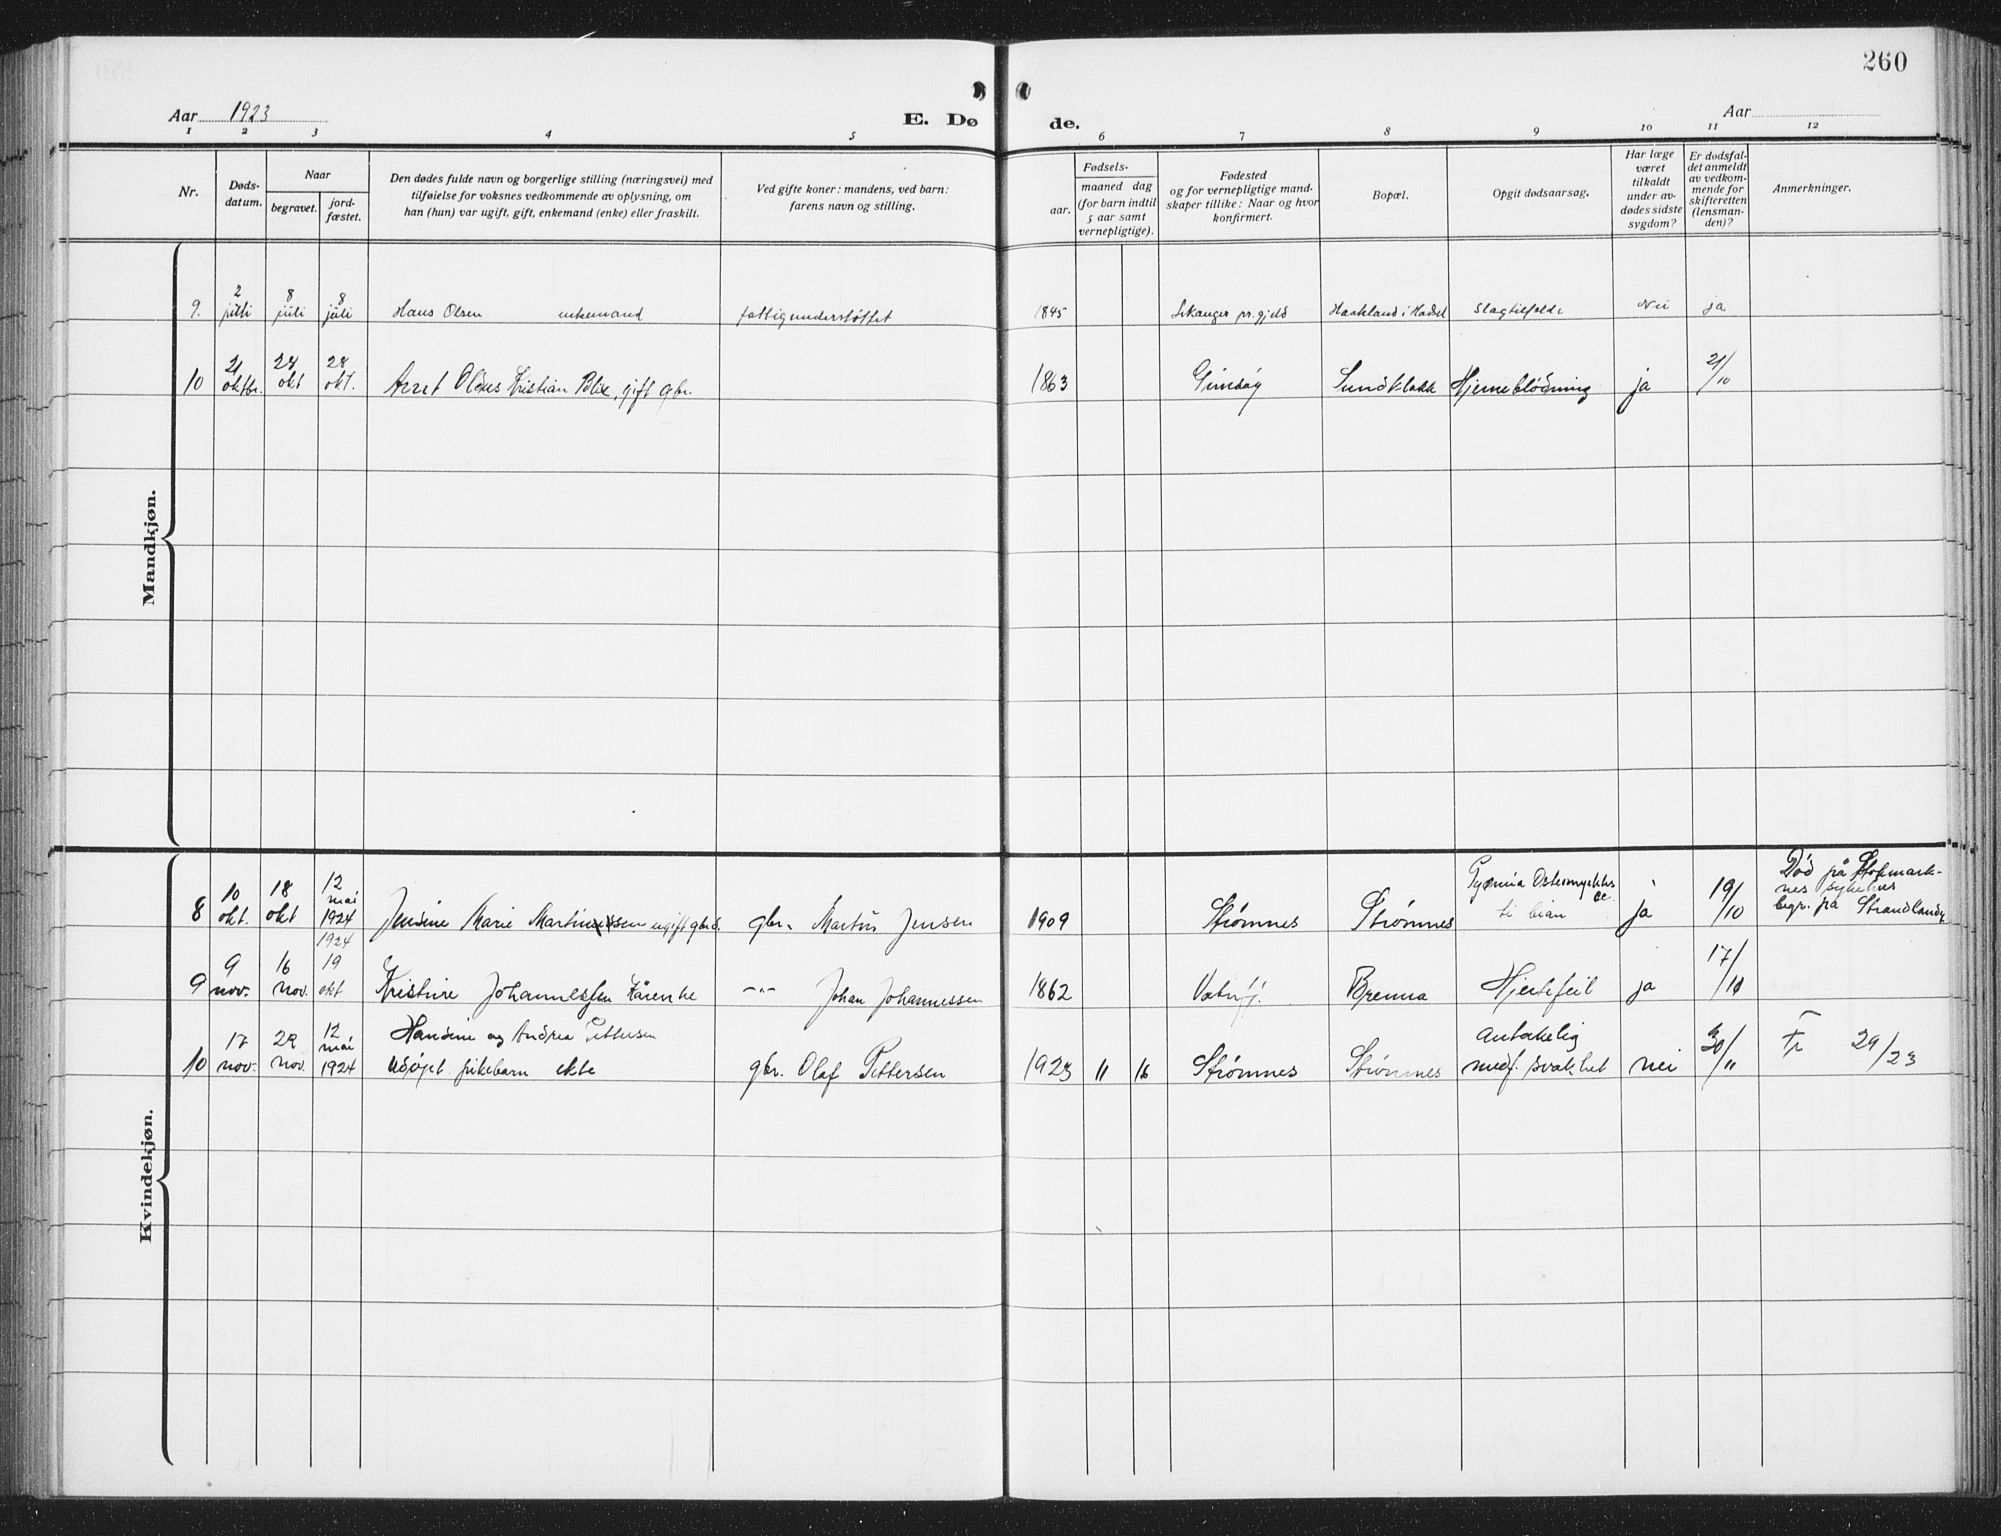 260
Aar 1923
E. Dø de.
Aar
1 2 3 4 5 6 7 8 9 10 11 12
Nr.
Døds-
datum.
Naar
begravet.
jord-
fæstet.
Den dødes fulde navn og borgerlige stilling (næringsvei) med
tilføielse for voksnes vedkommende av oplysning, om
han (hun) var ugift, gift, enkemand (enke) eller fraskilt.
Ved gifte koner: mandens, ved barn:
farens navn og stilling.
Fødsels-
aar.
maaned dag
(for barn indtil
5 aar samt
vernepligtige).
Fødested
og for vernepligtige mand-
skaper tillike: Naar og hvor
konfirmert.
Bopæl.
Opgit dødsaarsag.
Har læge
været
tilkaldt
under av-
dødes sidste
sygdom?
Er dødsfal-
det anmeldt
av vedkom-
mende for
skifteretten
(lensman-
den)?
Anmerkninger.
Mandkjøn.
9. 2 juli 8 juli 8 juli Hans Olsen enkemand fattigunderstøttet 1845 Lekanger pr.gjeld Haakland i Hadsel Slagtilfælde Nei ja
10 21 oktbr. 28 okt 28 okt. Olaus Kristian Blix, gift gbr. 1863 Gimsøy Sundklakk Hjerneblødning ja 21/10
Kvindekjøn.
8 10 okt. 18 okt 12 mai 1924 Jensine Marie Martinussen ugift gbrd. gbr. Martin Jensen 1909 Strømnes Strømnes ja 19/10 Død på Stokmark-
nes sykehus
begr. på Strandlandy
9 9 nov. 16 nov. 1924 19 okt Kristine Johannessen kårenke -"- Johan Johannessen 1862 Brenna Hjertefeil ja 17/10
10 17 nov. 22 nov. 12 mai 1924 Hansine og Andrea Pettersen
udøpt pikebarn ekte gbr. Olaf Pettersen 1923 11 16 Strømnes Strømnes antakelig
medf. svakhet nei 30/11 29/23